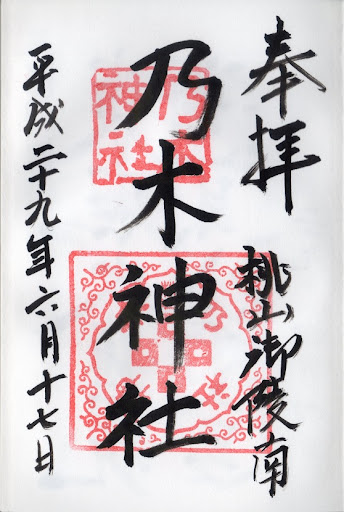 奉拝
桃山御陵南
乃木神社
平成二十九年六月十七日
乃木
神社